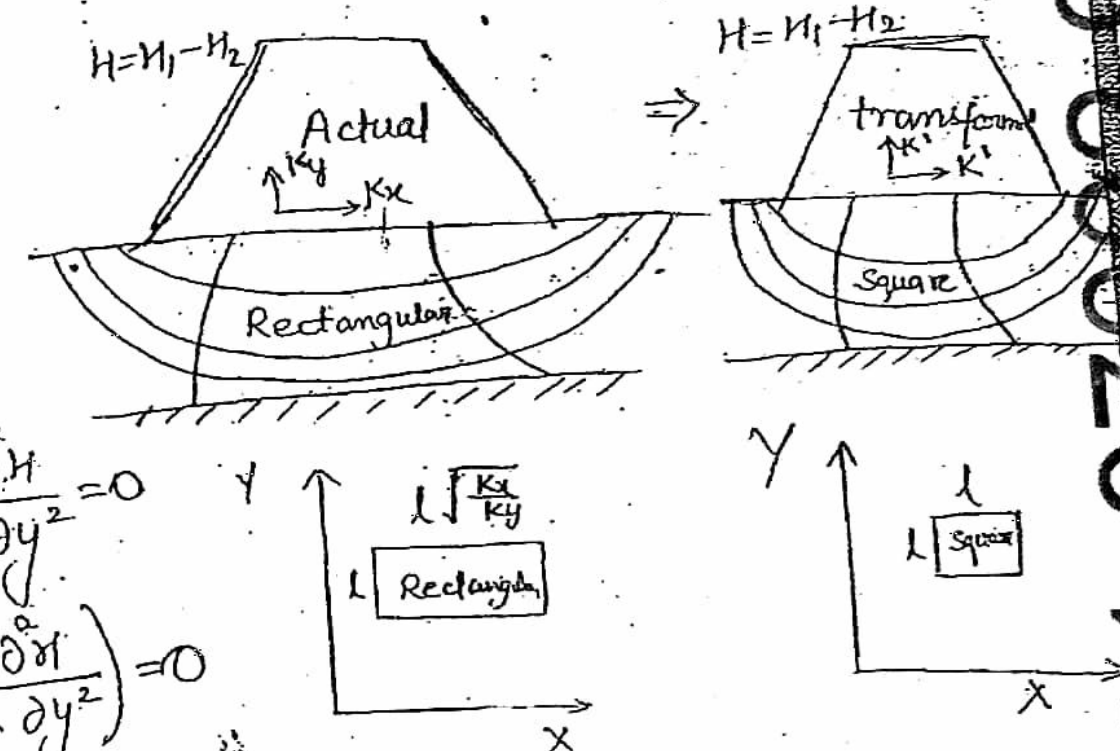 H=H₁-H₂
Actual
Ky
Kx
Rectangular
⇒
H=H₁-H₂
transform
K'
K'
Square
H
∂y² =0
∂²H
∂y² ) =0
Y
l√Kx/Ky
l Rectangular
X
Y
l
l Square
X